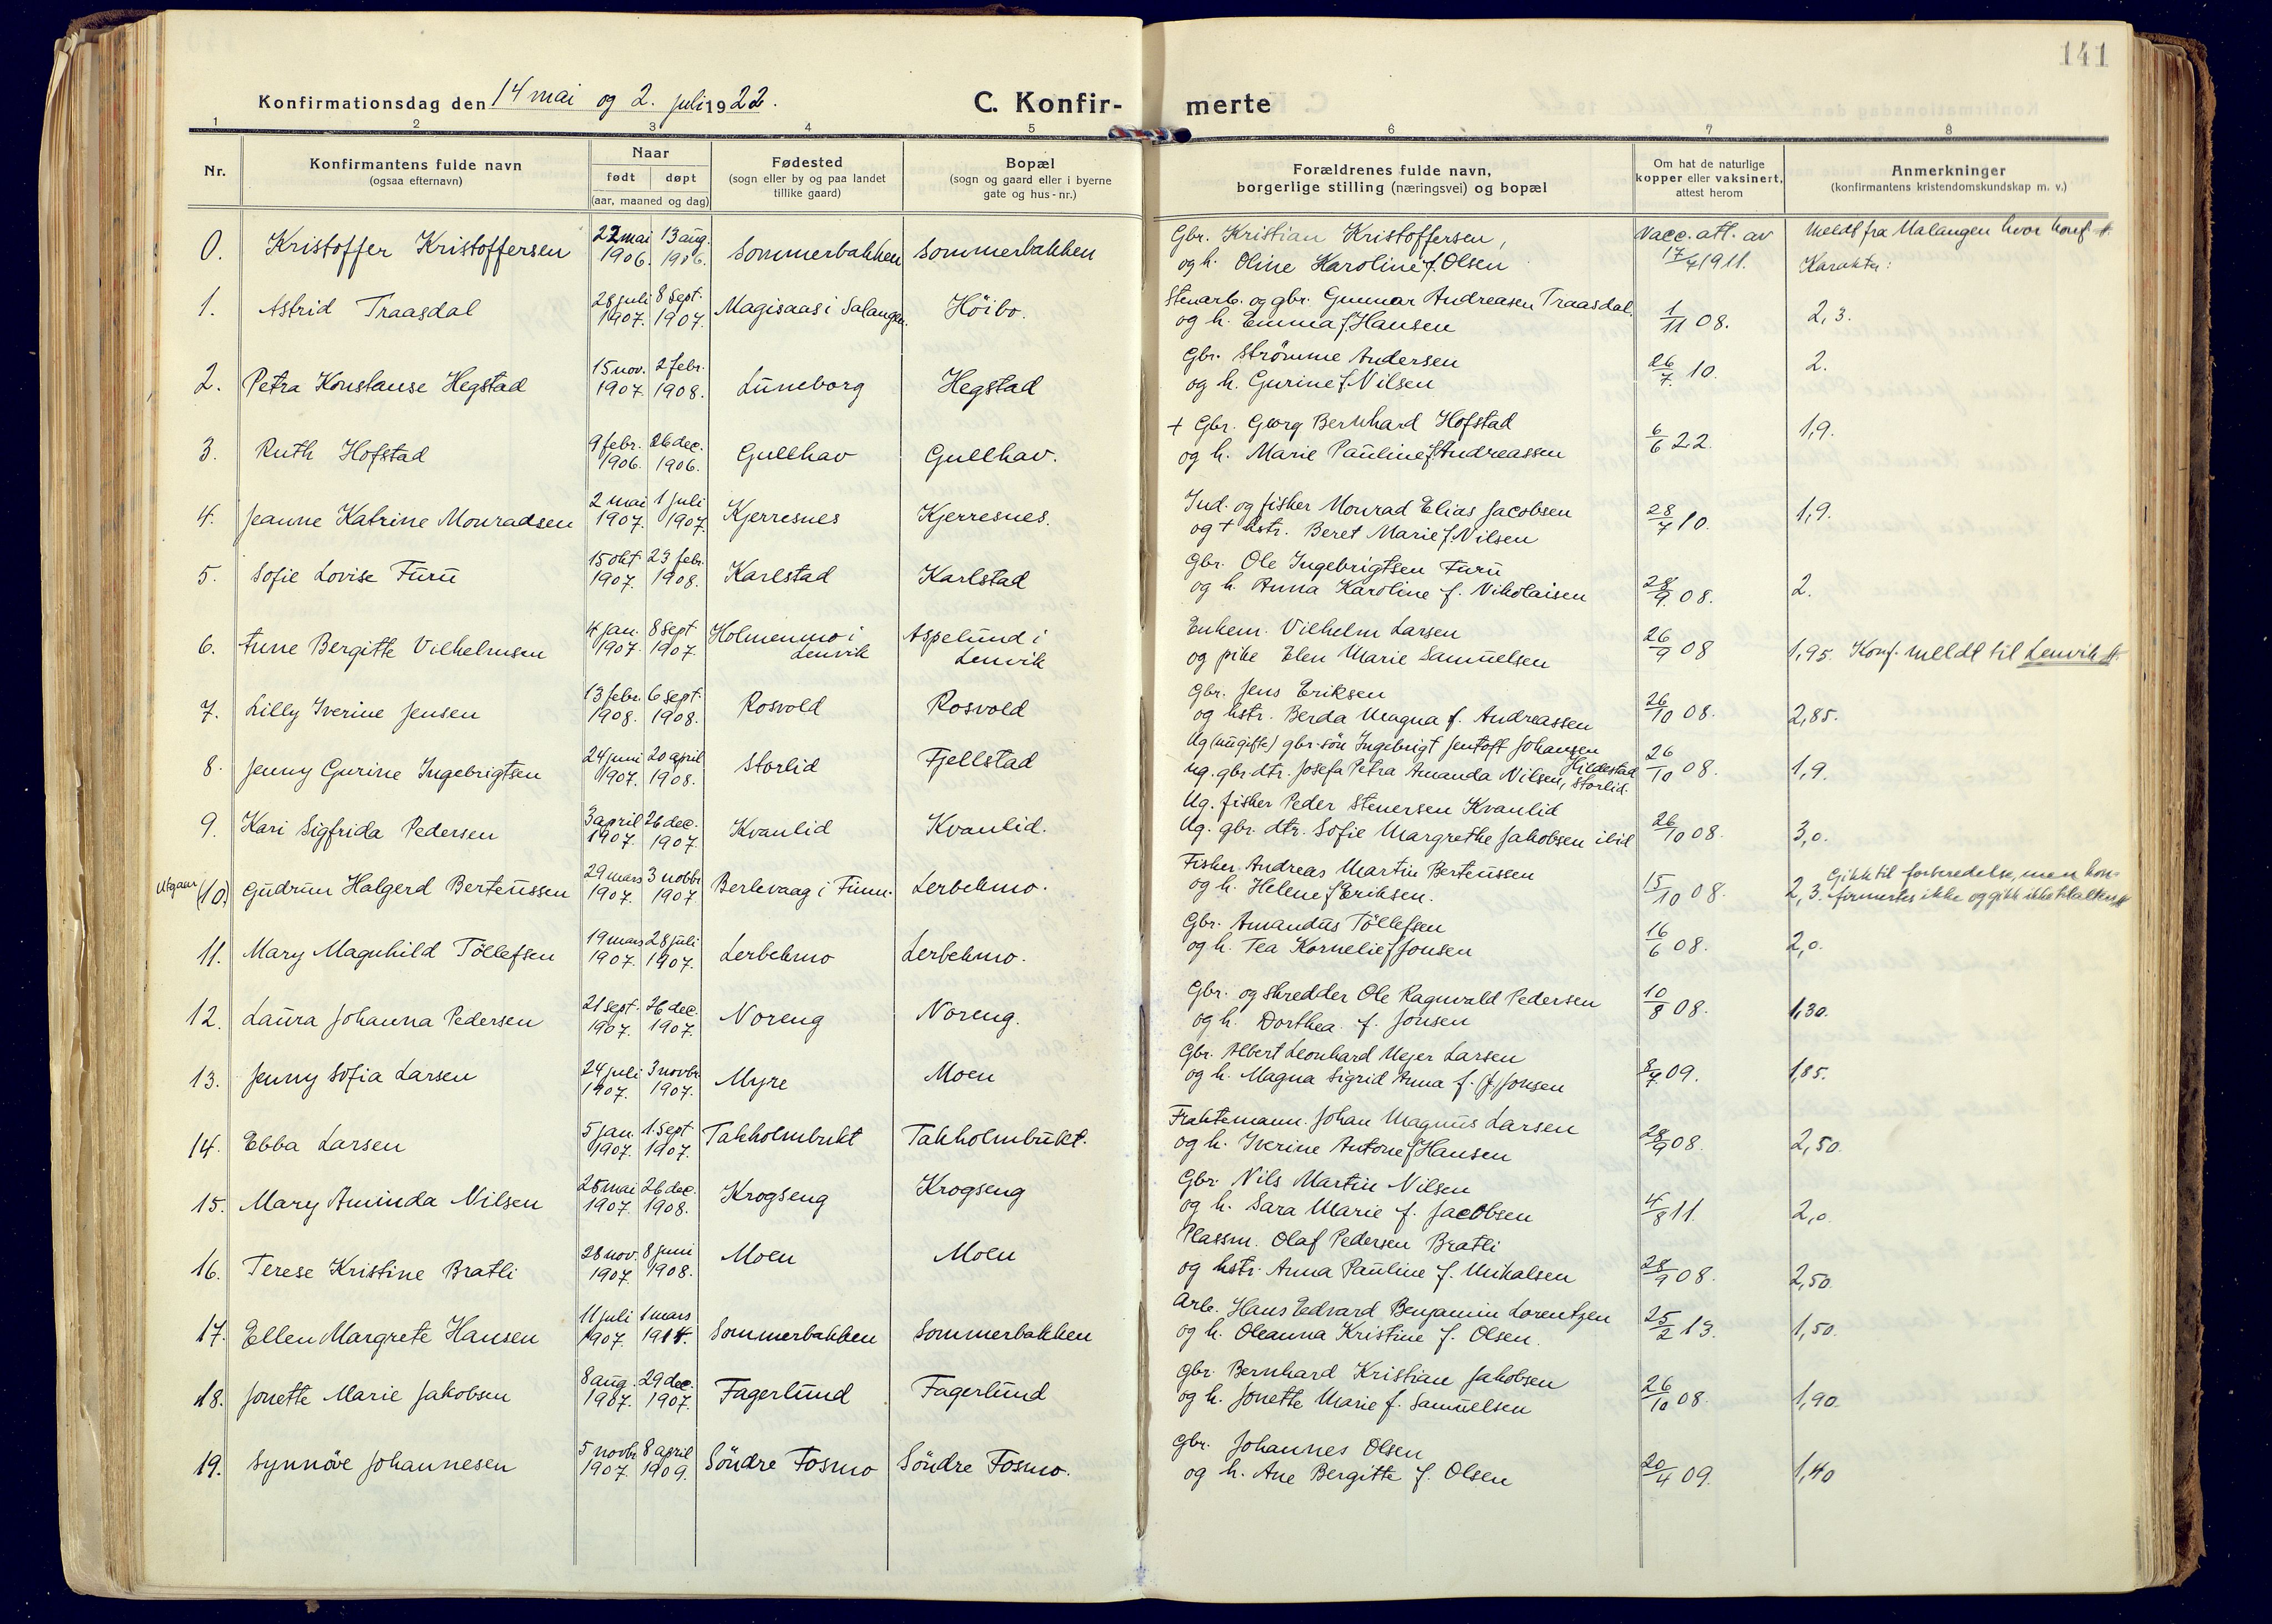 141
Konfirmationsdag den 14 mai og 2. juli 1922.
C. Konfir- merte
1 2 3 4 5 6 7 8
Nr.
Konfirmantens fulde navn
(ogsaa efternavn)
Naar
født døpt
(aar, maaned og dag)
Fødested
(sogn eller by og paa landet
tillike gaard)
Bopæl
(sogn og gaard eller i byerne
gate og hus-nr.)
Forældrenes fulde navn,
borgerlige stilling (næringsvei) og bopæl
Om hat de naturlige
kopper eller vaksinert,
attest herom
Anmerkninger
(konfirmantens kristendomskundskap m. v.)
0. Kristoffer Kristoffersen 22 mai 1906. 13 aug. 1906. Sommerbakken Sommerbakken
Gbr. Kristian Kristoffersen,
og h. Oline Karoline f. Olsen
Vacc. att. av
17/7 1911.
Meldt fra Malangen hvor konf.
Karakter:
1. Astrid Traasdal 28 juli 1907. 8 sept. 1907. Magisaas i Salangen. Höibo.
Stenarb. og gbr. Gunnar Andreasen Traasdal.
og h. Emma f. Hansen
1/11 08. 2,3.
2. Petra Konstanse Hegstad 15 nov. 1907. 2 febr. 1908. Luneborg Hegstad
Gbr. Strömme Andersen
og h. Gurine f. Nilsen
26/7. 10. 2.
3. Ruth Hofstad 9 febr. 1906. 26 dec. 1906. Gullhav Gullhav.
+ Gbr. Georg Bernhard Hofstad
og h. Marie Pauline f. Andreassen
6/6 22. 1,9.
4. Jeanne Katrine Monradsen 2 mai 1907. 1 juli 1907. Kjerresnes Kjerresnes.
Ind. og fisker Monrad Elias Jacobsen
og + hstr. Beret Marie f. Nilsen
28/7 10. 1,9.
5. Sofie Lovise Furu 15 okt 1907. 23 febr. 1908. Karlstad Karlstad
Gbr. Ole Ingebrigtsen Furu
og h. Anna Karoline f. Nikolaisen
28/9. 08. 2.
6. Anne Bergitte Vilhelmsen 4 jan. 1907. 8 sept 1907. Holmenmo i Lenvik Aspelund i Lenvik
Enkem. Vilhelm Larsen
og pike Elen Marie Samuelsen
26/9 08 1,95. Konf. meldt til Lenvik
7. Lilly Iverine Jensen 13 febr. 1908. 6 sept. 1908. Rosvold Rosvold
Gbr. Jens Eriksen
og hstr. Berda Magna f. Andreassen
26/10 08. 2,85.
8. Jenny Gurine Ingebrigtsen 24 juni 1907. 20 april 1908. Storlid Fjellstad
Ug (ungifte) gbr. sön Ingebrigt Jentoft Johansen Hildestad
ug. gbr. dtr. Josefa Petra Amanda Nilsen, Storlid.
26/10 08. 1,9.
9. Kari Sigfrida Pedersen 3 april 1907. 26 dec. 1907. Kvanlid Kvanlid.
Ug. fisker Peder Stenersen Kvanlid
Ug. gbr. dtr. Sofie Margrethe Jakobsen ibid
26/10 08. 3,0.
Utgaar (10.) Gudrun Halgerd Berteussen 29 mars 1907. 3 novbr 1907 Berlevaag i Finm. Lerbekmo.
Fisker Andreas Martin Berteussen
og h. Helene f. Eriksen.
15/10 08. 2,3. Gikk til forberedelse, men kon-
firmertes ikke og gikk ikke til alters
11. Mary Magnhild Töllefsen 19 mars 1907. 28 juli 1907. Lerbekmo Lerbekmo.
Gbr. Amandus Töllefsen
og h. Tea Kornelie f. Jonsen
16/6 08. 2,0.
12. Laura Johanna Pedersen 21 sept. 1907. 26 dec. 1907. Noreng Noreng.
Gbr. og skredder Ole Ragnvald Pedersen
og h. Dorthea f. Jonsen
10/8 08. 1,30.
13. Jenny Sofia Larsen 24 juli 1907. 3 novbr. 1907. Myre Moen
Gbr. Albert Leonhard Mejer Larsen
og h. Magna Sigrid Anna f. Jonsen
8/7 09. 1,85.
14. Ebba Larsen 5 jan. 1907. 1. sept 1907. Takholmbukt Takholmbukt.
Fraktemann. Johan Magnus Larsen
og h. Iverine Antone f. Hansen
28/9 08. 2,50.
15. Mary Aminda Nilsen 25 mai 1907. 26 dec. 1908. Krogseng Krogseng
Gbr Nils Martin Nilsen
og h. Sara Marie f. Jacobsen
4/8 11. 2,0
16. Terese Kristine Bratli 28 nov. 1907. 8 juni 1908. Moen Moen
Plassm. Olaf Pedersen Bratli
og hstr. Anna Pauline f. Mikalsen
28/9 08. 2,50
17. Ellen Margrete Hansen 11 juli 1907. 1 mars 1914. Sommerbakken Sommerbakken
Arb. Hans Edvard Benjamin Lorentzen
og h. Oleanna Kristine f. Olsen.
25/2 13. 1,50.
18. Jonette Marie Jakobsen 8 aug. 1907. 29 dec. 1907. Fagerlund Fagerlund
Gbr. Bernhard Kristian Jakobsen
og h. Jonette Marie f. Samuelsen
26/10 08. 1,90.
19. Synnöve Johannesen 5 novbr 1907. 8 april 1909. Söndre Fosmo Söndre Fosmo.
Gbr. Johannes Olsen
og h. Ane Bergitte f. Olsen
20/4 09. 1,40